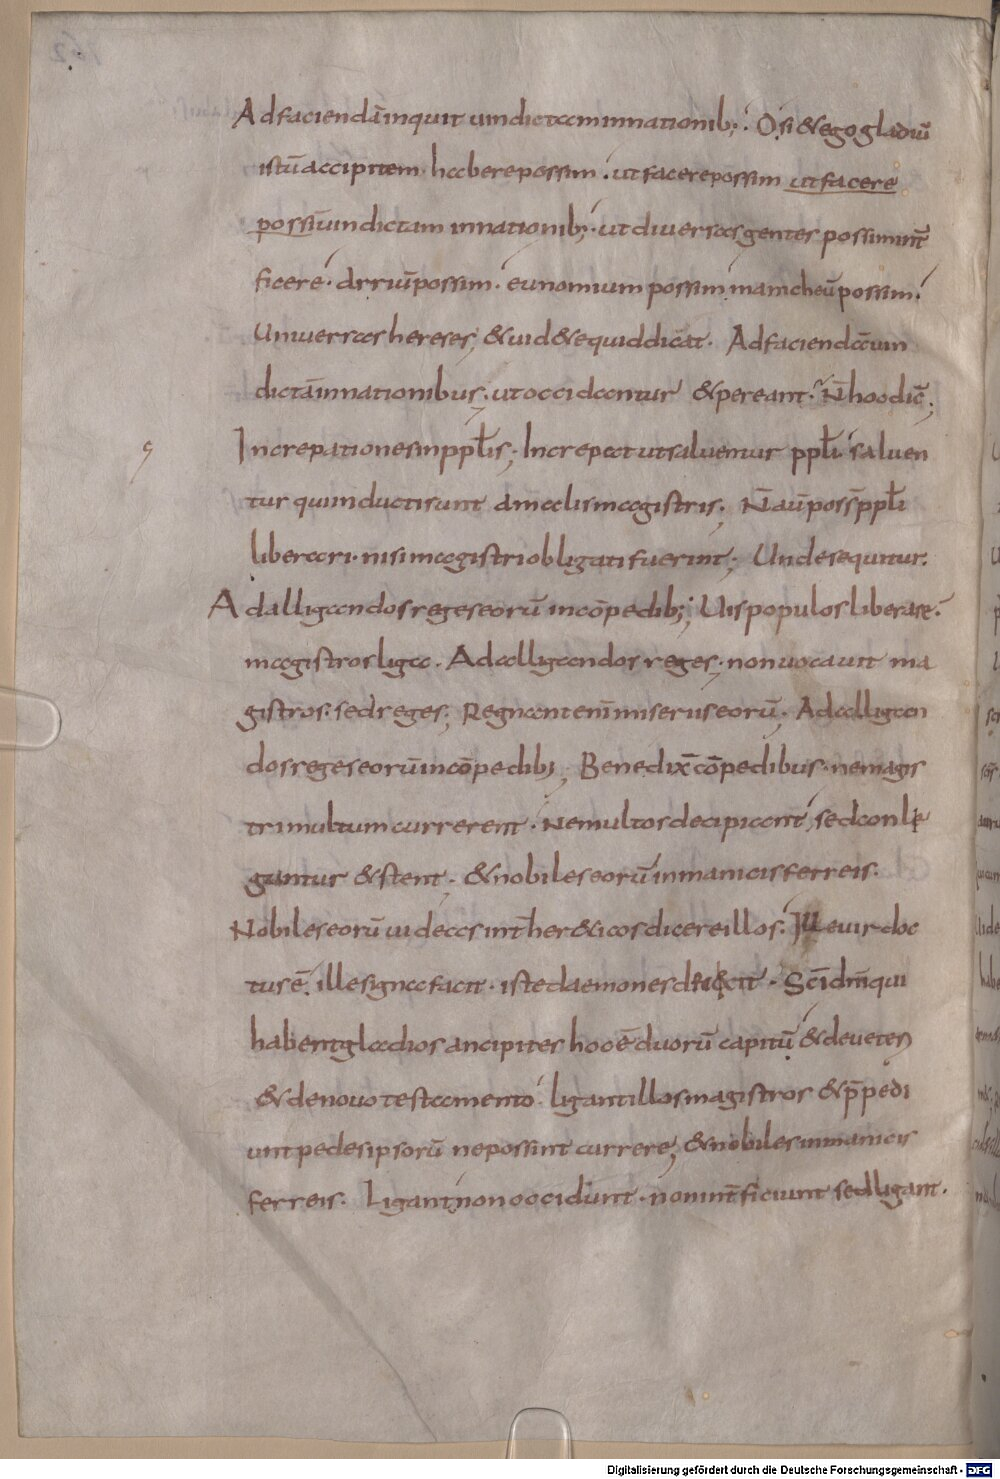 Ad faciendā inquit uindictam in nationib;. O si & ego gladiū
istū accipitem habere possim. ut facere possim ut facere
possī uindictam in nationib;. ut diuersas gentes possim int̄
ficere. Arriū possim. eunomium possim manicheū possim.
Uniuersas hereses; & uid& e quid dicat. Ad faciendā uin
dictā in nationibus; ut occidantur & pereant. N̄ hoc dic̄;
Increpationes in ppl̄is; Increpat ut saluentur ppl̄i. saluen
tur qui inducti sunt a malis magistris; N̄ aū poss̄ ppl̄i
liberari. nisi magistri obligati fuerint; Unde sequitur.
Ad alligandos reges eorū in cōpedib;; Uis populos liberare.
magistros liga. Ad alligandos reges; non uocauit ma
gistros. sed reges; Regnant enī miseris eorū. Ad alligan
dos reges eorū in cōpedib;; Benedix̄ cōpedibus. ne magis
tri multum currerent. Ne multos decipiant, sed conli
gantur & stent. & nobiles eorū in manicis ferreis.
Nobiles eorū uideas int̄ her&icos dicere illos. Ille uir doc
tus ē. ille signa facit. iste daemones eicit. Sc̄i dn̄i qui
habent gladios ancipites hoc ē duorū capitū & de ueteri
& de nouo testamento. ligant illos magistros & p̄pedi
unt pedes ipsorū ne possint currere; & nobiles in manicis
ferreis. Ligant, non occidunt. non int̄ficiunt sed ligant.
Digitalisierung gefördert durch die Deutsche Forschungsgemeinschaft - DFG